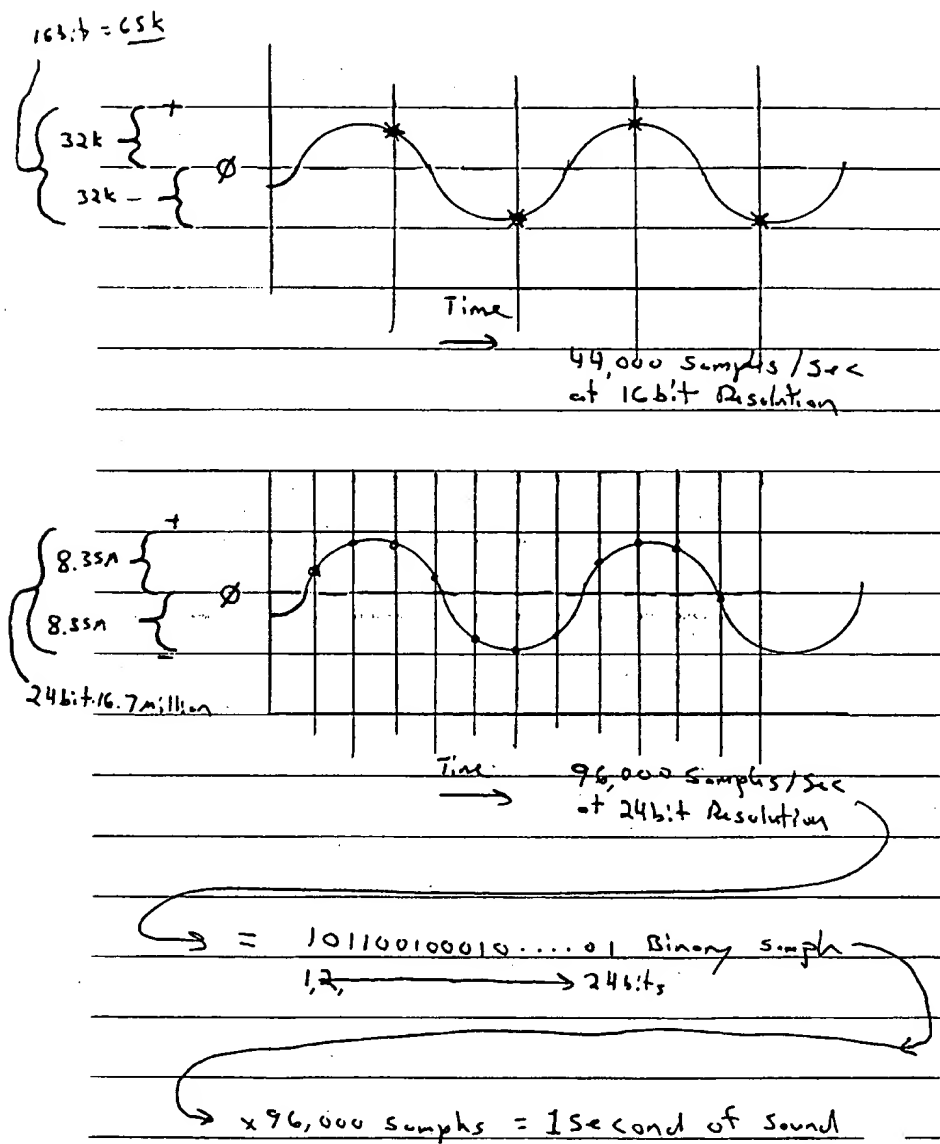 16bit = 65k
+
32k
Ø
32k -
Time
44,000 Samples/Sec
at 16bit Resolution
+
8.35m
Ø
8.35m
-
24bit.16.7million
Time
96,000 Samples/Sec
at 24bit Resolution
= 101100100010....01 Binary sample
1,2, 24bits
x96,000 samples = 1Second of Sound